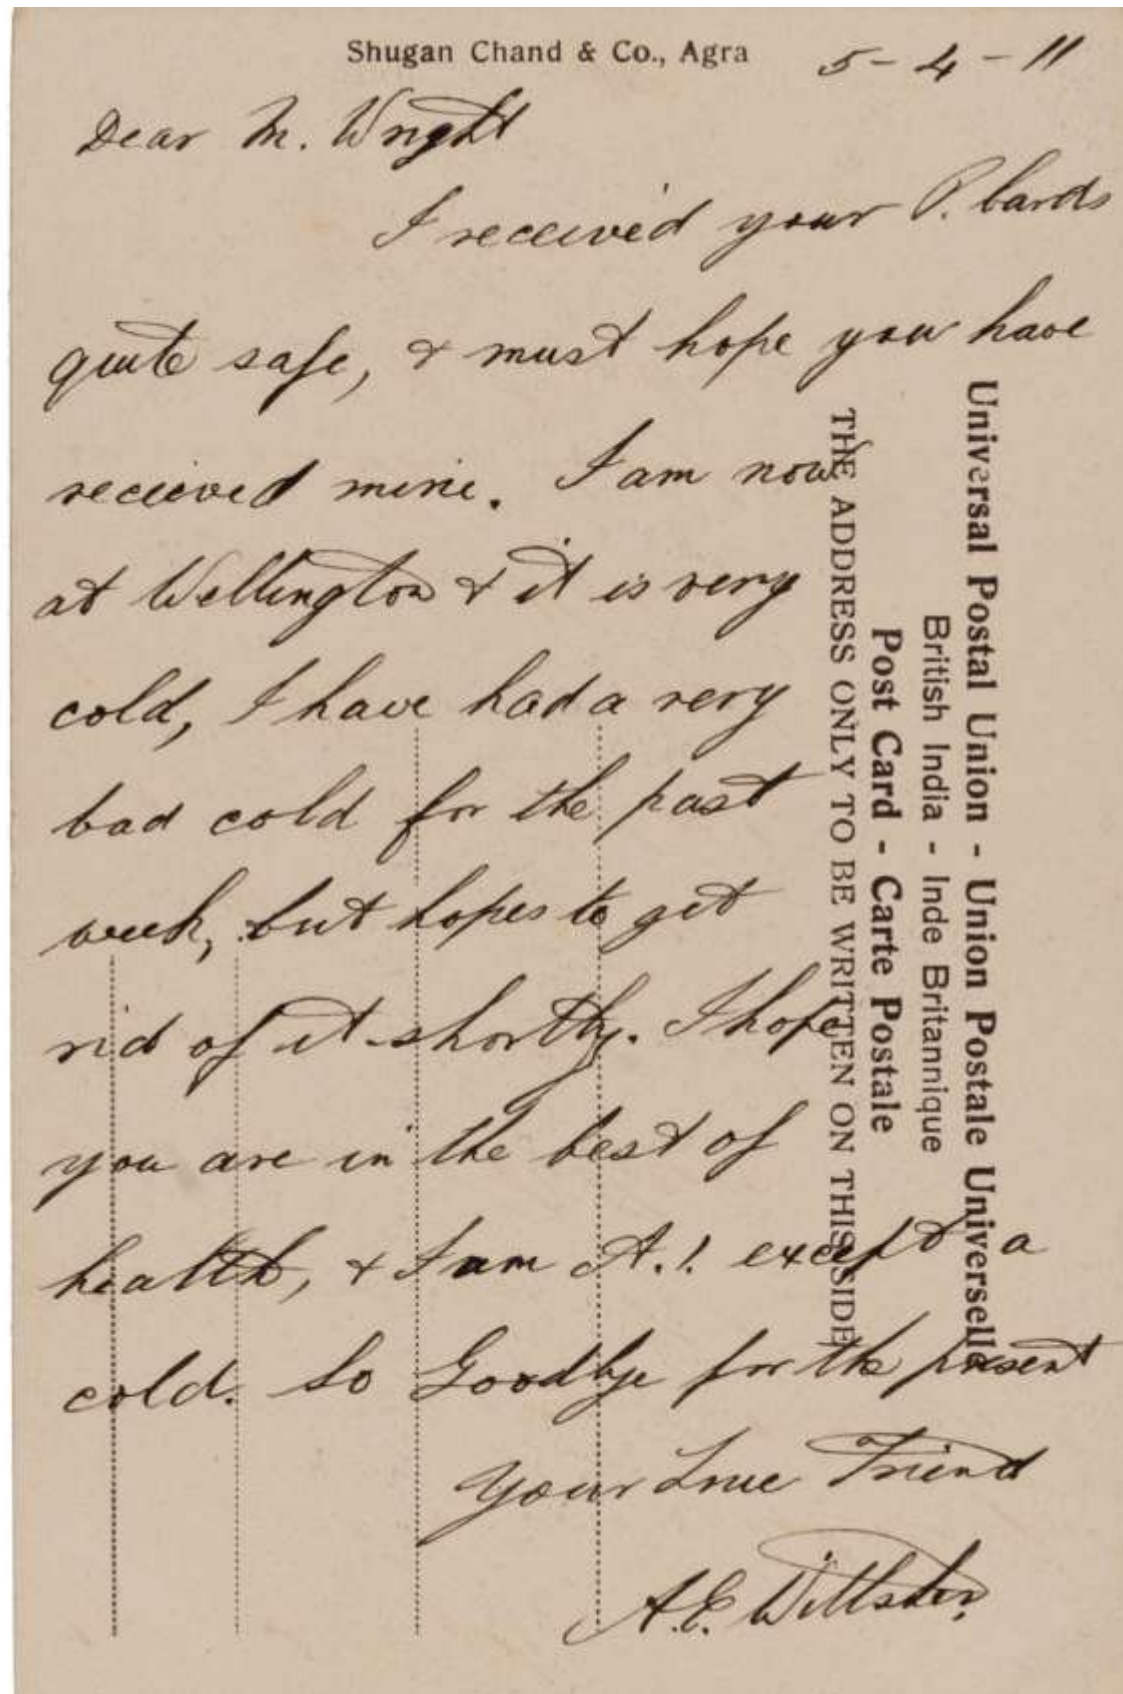 Shugan Chand & Co., Agra
5-4-11
Dear M. Wright
I received your P. Cards
quite safe, & must hope you have
recieved mine. I am now
at Wellington & it is very
cold, I have had a very
bad cold for the past
week, but hopes to get
rid of it shortly. I hope
you are in the best of
health, & I am A.1. except a
cold. So Goodbye for the present
Your True Friend
A.E.
Universal Postal Union - Union Postale Universelle
British India - Inde Britannique
Post Card - Carte Postale
THE ADDRESS ONLY TO BE WRITTEN ON THIS SIDE